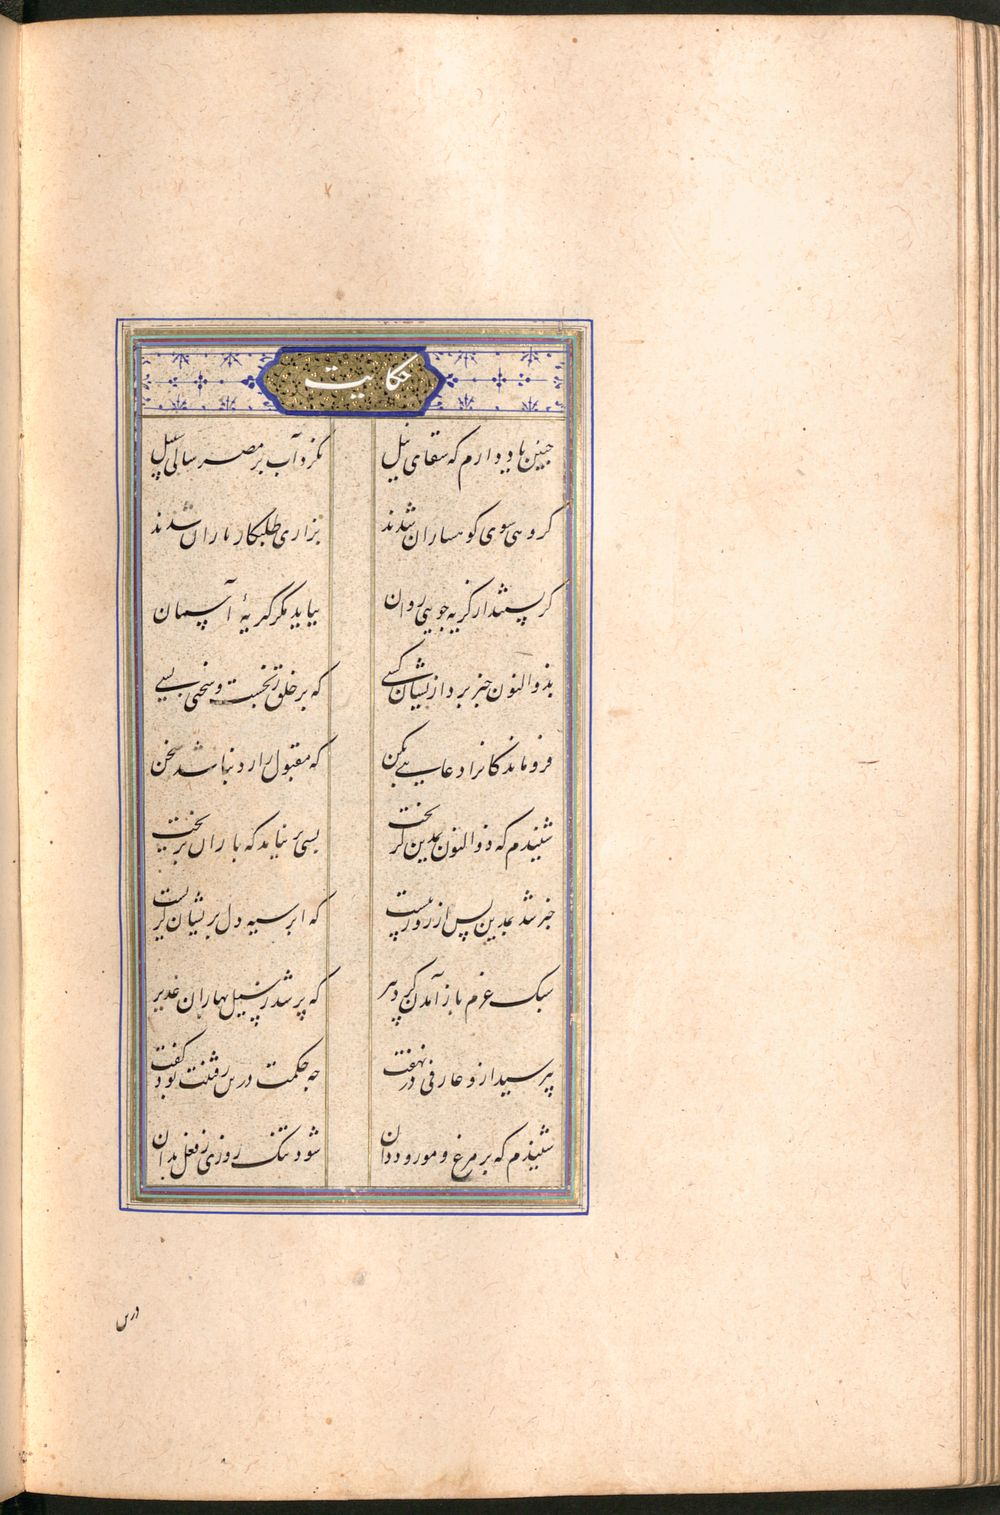 حکایت
چنین یاد دارم که سقای نیل نکرد آب بر مصر سالی سبیل
گروهی سوی کوهساران شدند بزاری طلبکار باران شدند
گرستند از گریه جویی روان بیاید مگر گریهٔ آسمان
بذوالنون خبر برد ازیشان کسی که بر خلق رنجست و سختی بسی
فروماندگانرا دعایی بکن که مقبول را رد نباشد سخن
شنیدم که ذوالنون بمدین گریخت بسی بر نیامد که باران بریخت
خبر شد بمدین پس از روز بیست که ابر سیه دل بریشان گریست
سبک عزم باز آمدن کرد پیر که پر شد ز سیل بهاران غدیر
بپرسید ازو عارفی در نهفت چه حکمت درین رفتنت بود گفت
شنیدم که بر مرغ و مور و ددان شود تنک روزی ز فعل بدان
درین